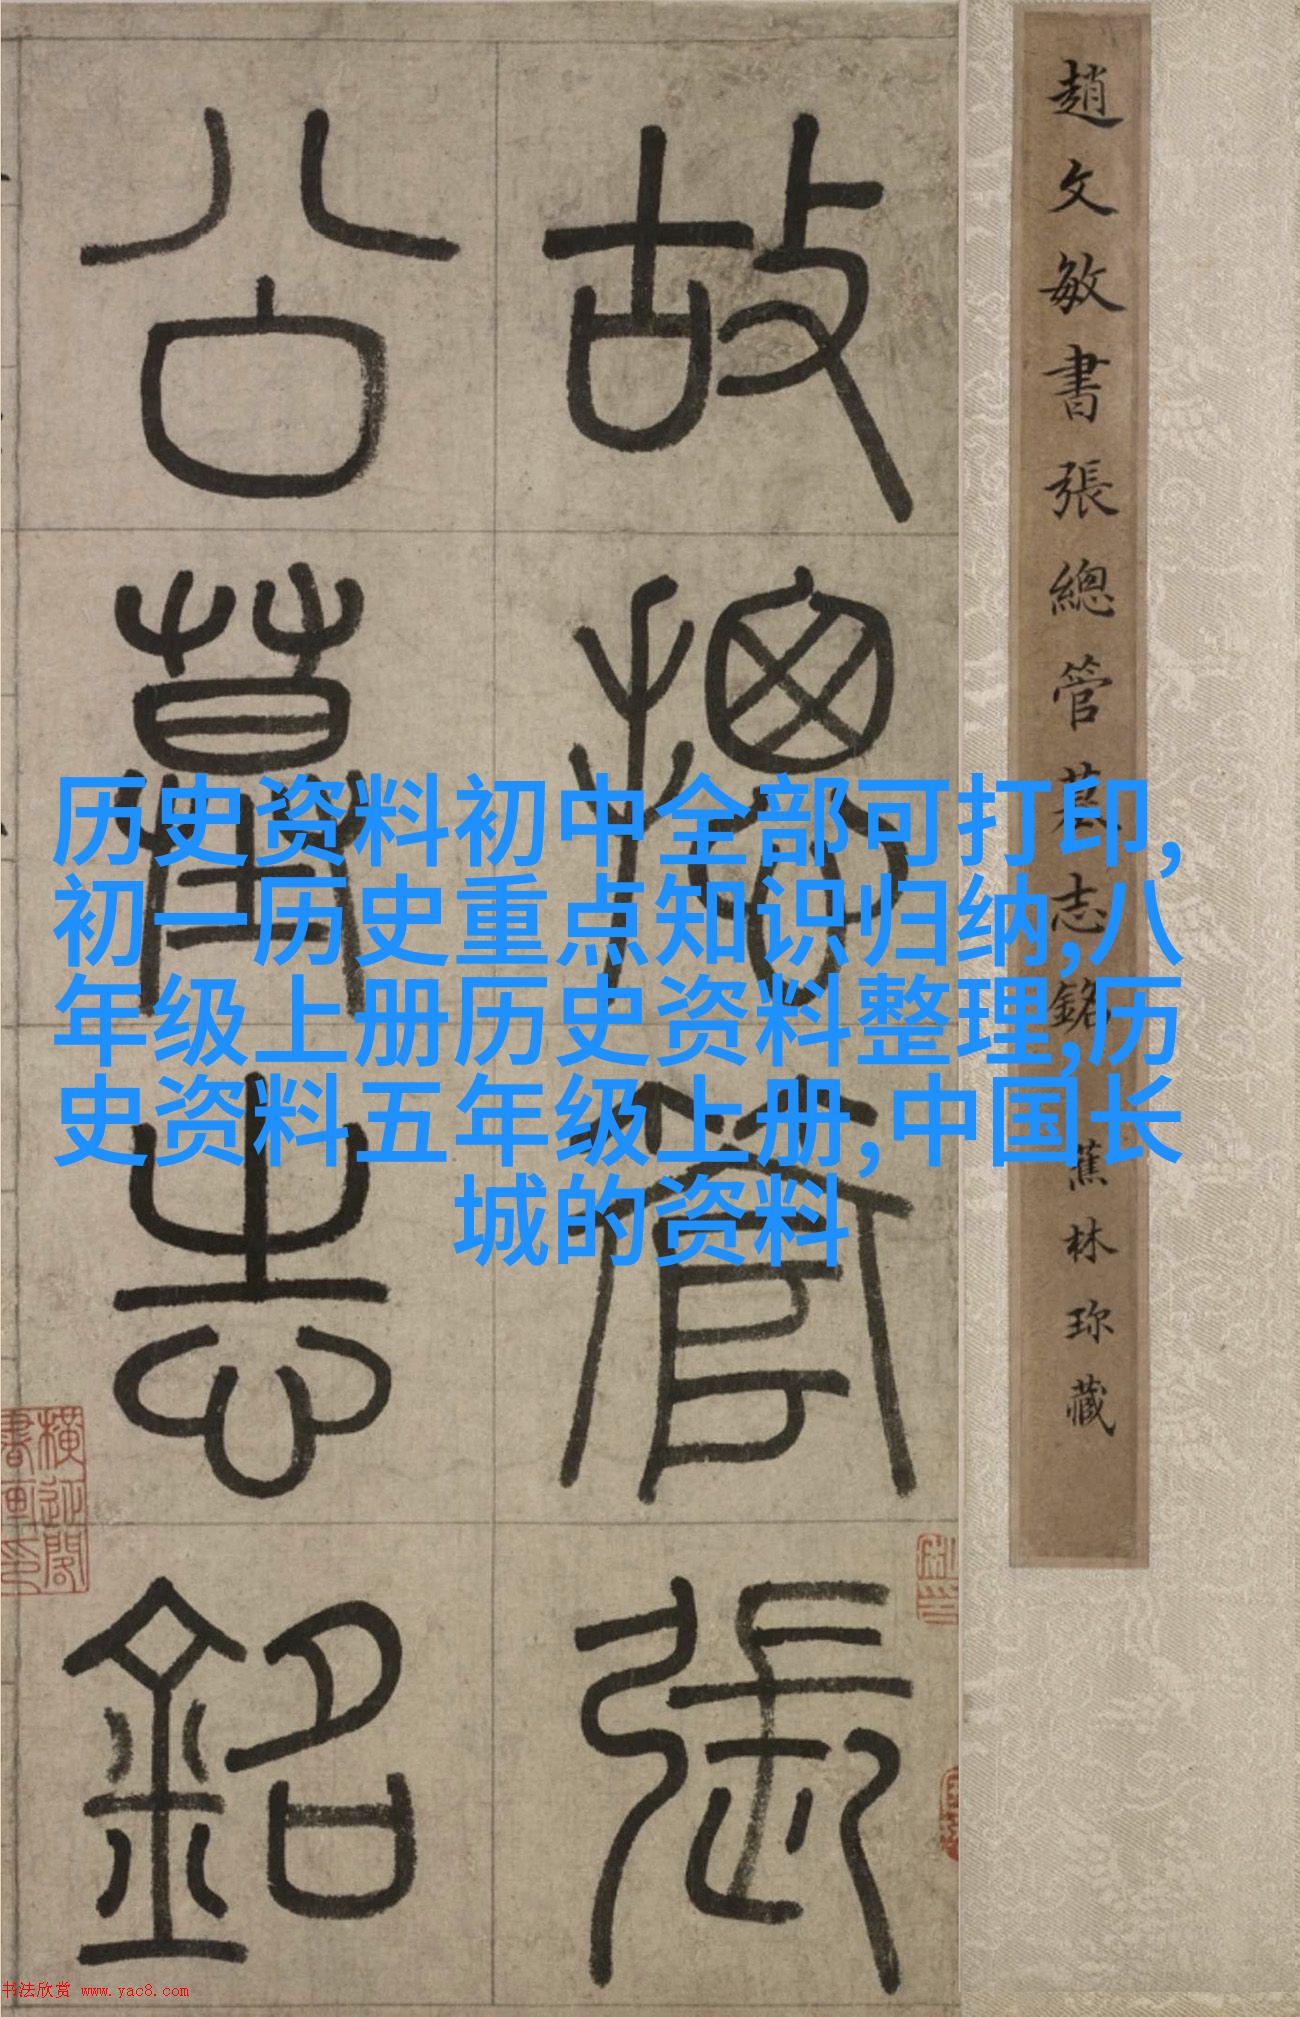 趙文敏書張總管墓志銘 蕉林珍藏
故摠管張
公墓志銘
历史资料初中全部可打印,
初一历史重点知识归纳,八
年级上册历史资料整理,历
史资料五年级上册,中国长
城的资料
书法欣赏 www.yac8.com